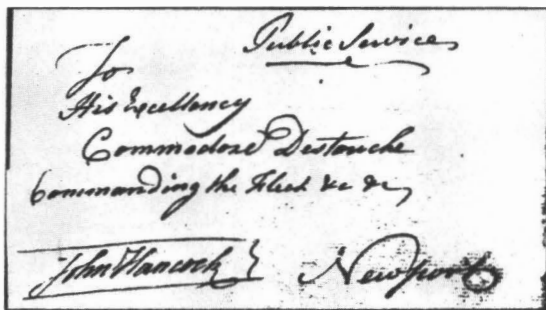 Public Service
To
His Excellency
Commodore Destouche
Commanding the Fleet &c &c
John Hancock Newport